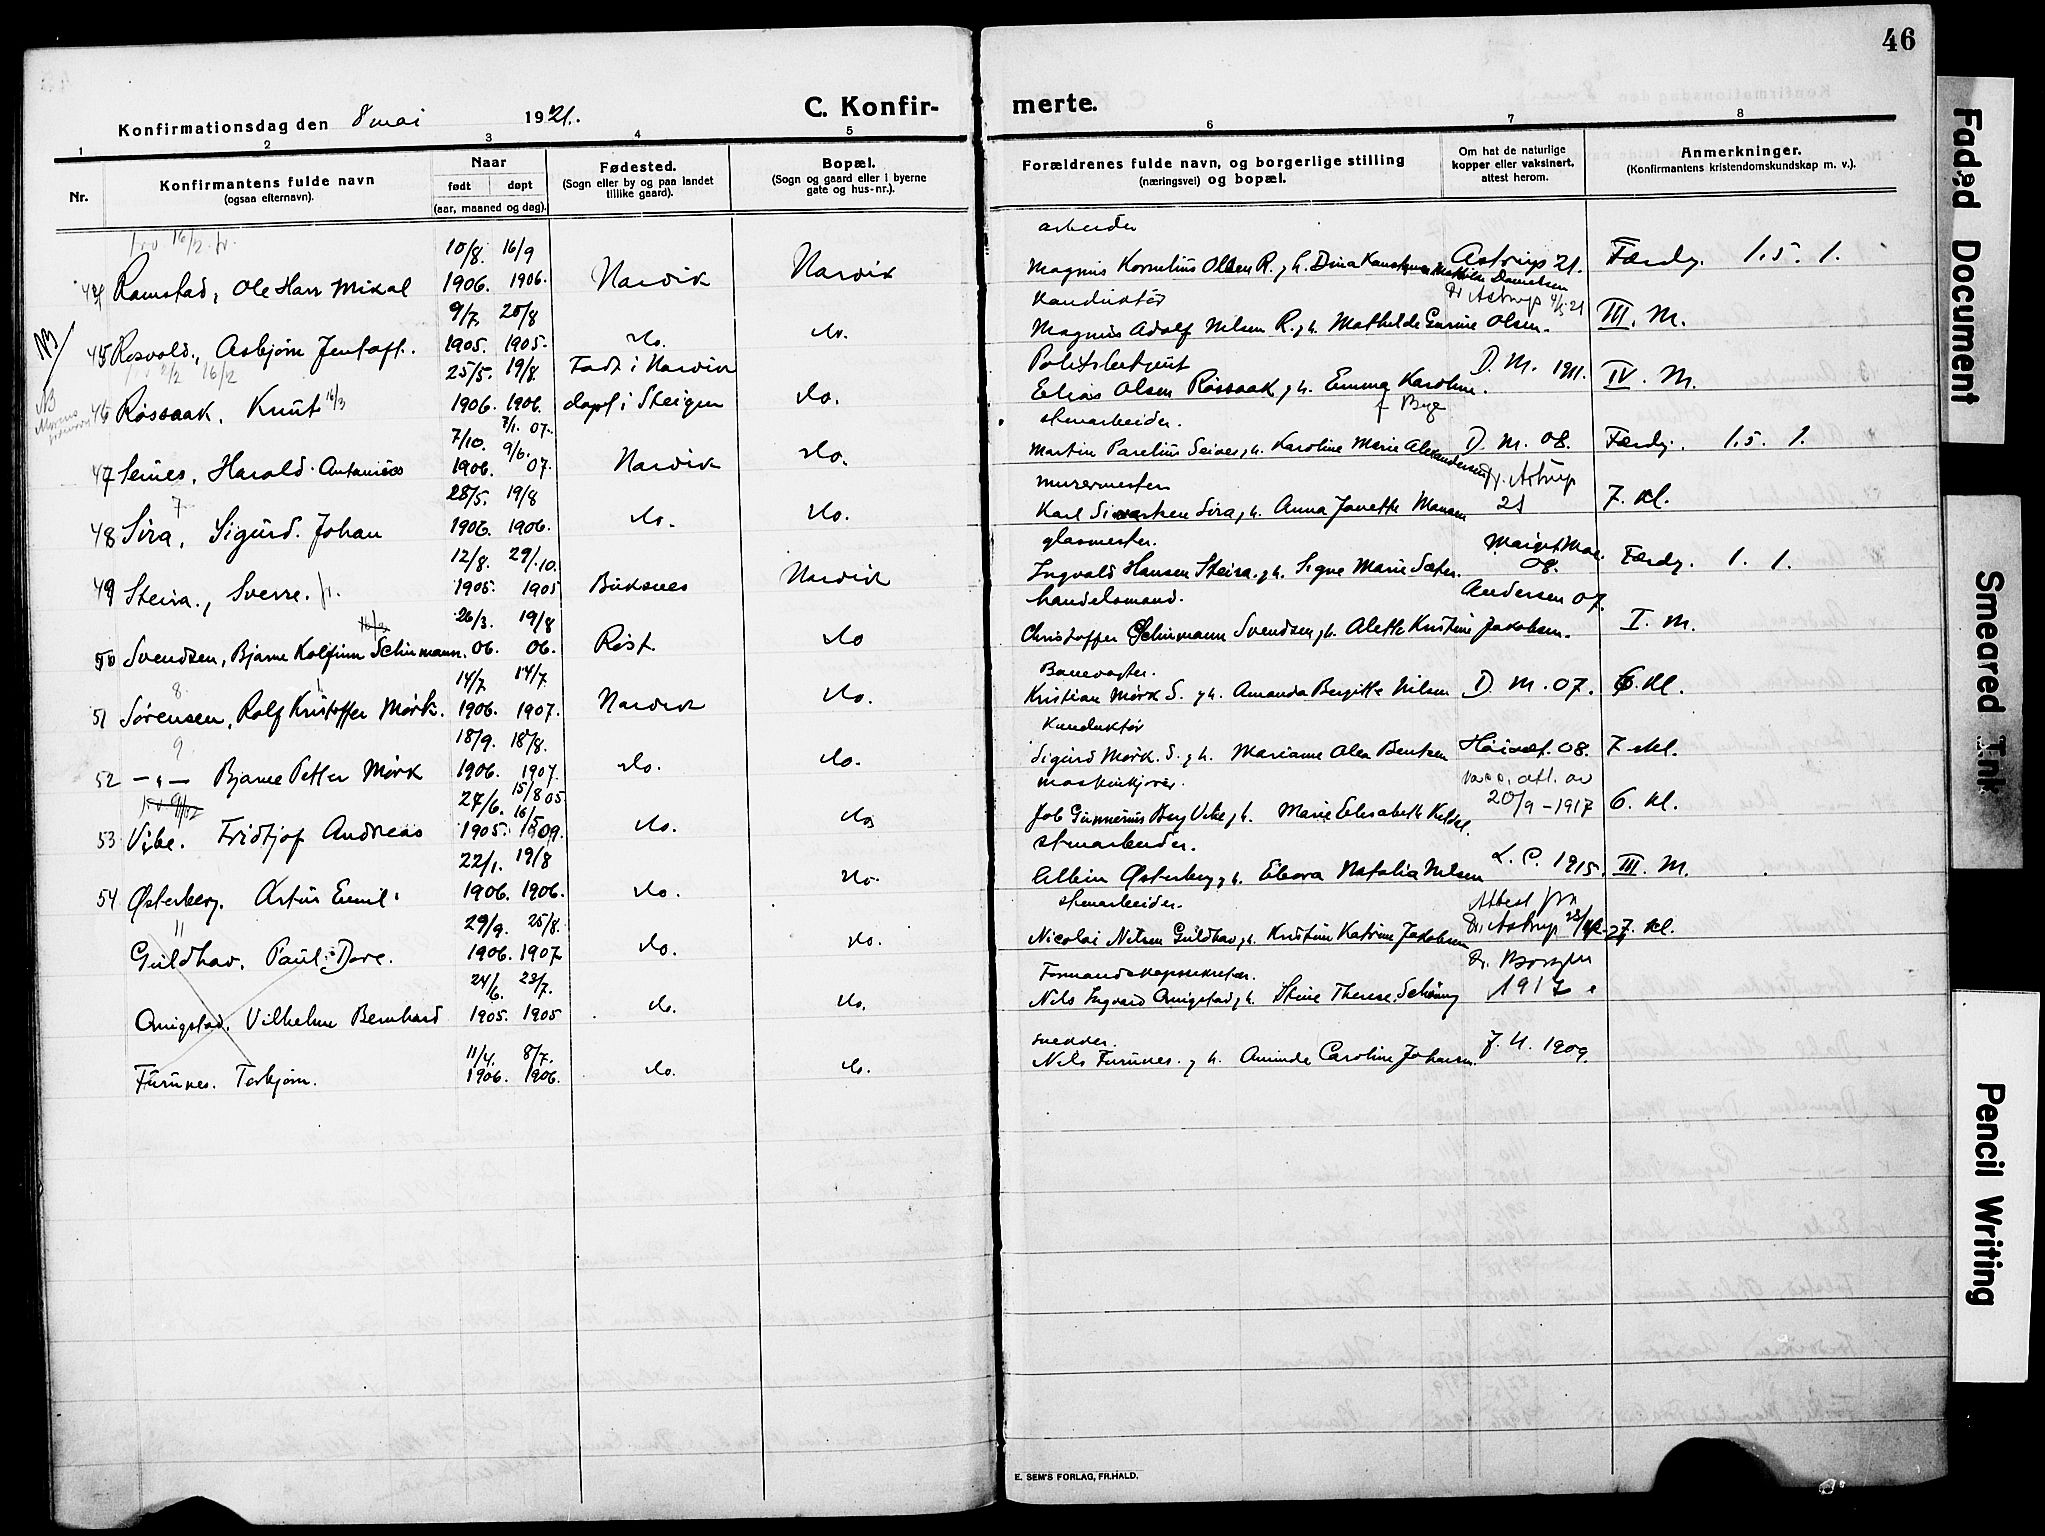 46
Konfirmationsdag den 8 mai 1921.
C. Konfirmerte.
1 2 3 4 5 6 7 8
Nr.
Konfirmantens fulde navn
(ogsaa efternavn).
Naar
født døpt
(aar, maaned og dag).
Fødested.
(Sogn eller by og paa landet
tillike gaard).
Bopæl.
(Sogn og gaard eller i byerne
gate og hus-nr.).
Forældrenes fulde navn, og borgerlige stilling
(næringsvei) og bopæl.
Om hat de naturlige
kopper eller vaksinert,
attest herom.
Anmerkninger.
(Konfirmantens kristendomskundskap m. v.).
10/8. 16/9 arbeider
44 Ramstad, Ole Hans Mikal 1906. 1906. Narvik Narvik Magnus Kornelius Olsen R. g h. Dina Mathilde Danielsen Astrup 21. Færdig. 1.5. 1.
9/7 20/8 Konduktør Dr Astrup 4/5 21
NB 45 Rosvold, Asbjørn Jentoft. 1905. 1905. do. do. Magnus Adolf Nilsen R. g h. Mathilde Gurine Olsen. III. M.
25/5. 19/8. Født i Narvik Politibetjent D. M. 1911.
NB 46 Røssaak, Knut 16/3 1906. 1906. døpt i Steigen do. Elias Olsen Røssaak g h. Emma Karoline f Bye IV. M.
7/10. 7/1. 07. 9/6. stenarbeider.
47 Seines, Harald Antonius 1906. 07. Narvik do. Martin Parelius Seines g h. Karoline Marie Alexandersen D. M. 08. Færdig. 1.5. 1.
28/5. 19/8 murermester Dr. Astrup
48 Sira, Sigurd Johan 1906. 1906. do. do. Karl Sivertsen Sira g h. Anna Janette Monsen 21 7. Kl.
12/8. 29/10. glasmester.
49 Steira, Sverre. 1905. 1905 Buksnes Narvik Ingvald Hansen Steira g h. Signe Marie Sæter. 08. Færdig. 1. 1.
26/3. 19/8 handelsmand. Andersen 07.
50 Svendsen, Bjarne Kolfinn Schinmann. 06. 06. Røst. do Christoffer Schinmann Svendsen g h. Alette Kristine Jakobsen. I. M.
14/7 14/7. Banevogter.
51 Sørensen, Rolf Kristoffer Mørk. 1906. 1907. Narvik do. Kristian Mørk S. g h. Amanda Bergitte Nilsen D. M. 07. 6. Kl.
18/9. 18/8. Konduktør
52 —"— Bjarne Petter Mørk 1906. 1907. do. do. Sigurd Mørk S. g h. Marianne Alea Bentsen 08. 7. kl.
27/6. 15/8 05. 16/5 maskinkjører. vacc. att. av
53 Vibe. Fridtjof Andreas 1905. 1909. do. do Job Gunnerius Berg Vibe g h. Marie Elisabeth 20/9 - 1917 6. kl.
22/1. 19/8 stenarbeider.
54 Østerberg. Artur Emil. 1906. 1906. do. do. Albin Østerberg g h. Eleora Natalia Nilsen L. C. 1915. III. M.
29/9. 25/8. stenarbeider. Attest fra
Guldhav. Paul Dore. 1906. 1907 do. do. Nicolai Nilsen Guldhav g h. Kristine Katrine Jakobsen Dr. Astrup 7. kl.
24/6. 23/7. Formandskapssekretær. Dr. Borgen
Qvigstad. Vilhelm Bernhard 1905. 1905 do. do. Nils Ingvard Qvigstad g h. Stine Therese Schöning 1917
11/4. 8/7. snedder.
Furunes. Torbjørn. 1906. 1906. do. do. Nils Furunes. g h. Aminda Caroline Johansen J. H. 1909.
E. SEM'S FORLAG, FR.HALD.
Faded Document
Smeared Ink
Pencil Writing